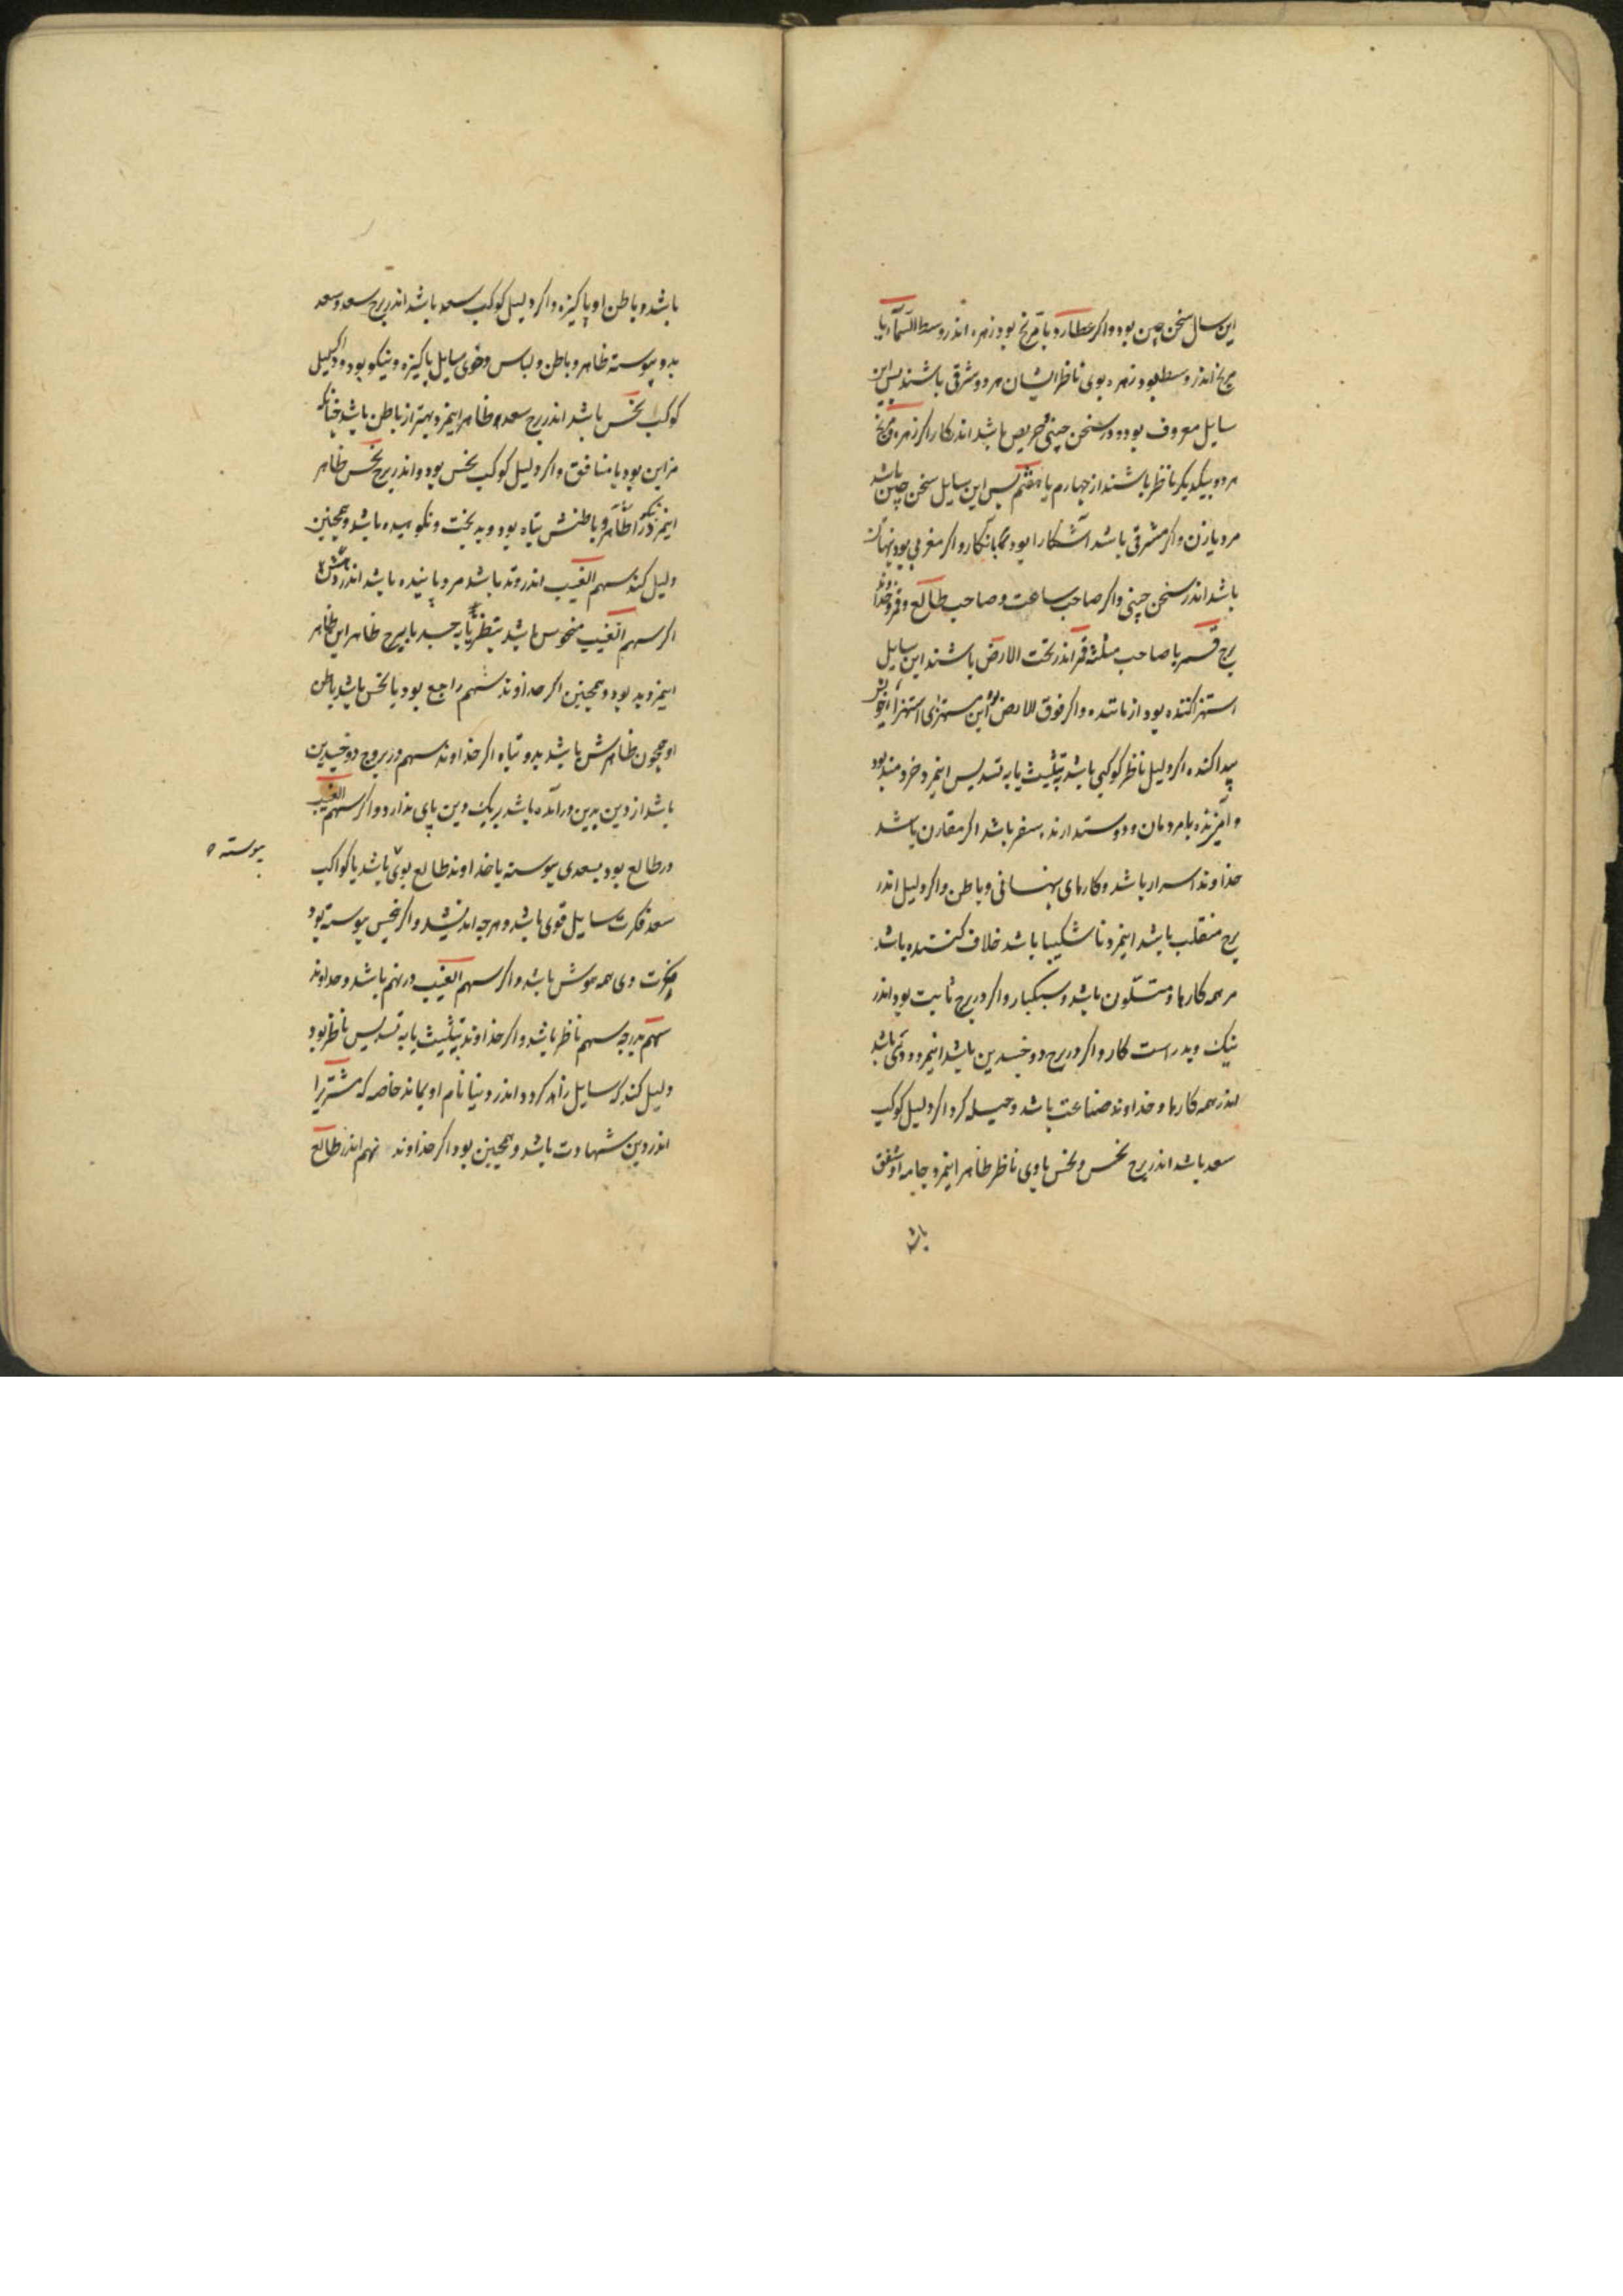 این سال سخن چین بود و اکر عطارد با مریخ بود زهره اندر وسط السماء یا
مریخ اندر وسط بود و زهره بوی ناظر ایشان هر دو شرقی باشند پس این
سایل معروف بود و در سخن چینی حریص باشد اندر کار اکر زهره و مریخ
هر دو بیکدیکر ناظر باشند از چهارم یا هفتم پس این سایل سخن چین باشد
مرد یا زن و اکر مشرقی باشد آشکارا بود و اکر مغربی بود پنهان
باشد اندر سخن چینی و اکر صاحب ساعت و صاحب طالع و قمر و خداوند
برج قمر با صاحب مثلثه قمر اندر تحت الارض باشند این سایل
استهزا کننده بود از ماننده و اکر فوق الارض بود این مستهزی استهزاء خویش
پیدا کند و اکر دلیل ناظر کوکبی باشد بتثلیث یا به تسدیس اینمرد خردمند بود
و آمیزنده با مردمان و دوستدارنده سفر باشد اکر مقارن باشد
خداوند اسرار باشد و کارهای پنهانی و باطن و اکر دلیل اندر
برج منقلب باشد اینمرد ناشکیبا باشد خلاف کننده باشد
مر همه کارها و متلون باشد و سبکبار و اکر در برج ثابت بود اندر
نیک و بد راست کار و اکر در برج دو جسدین باشد اینمرد دوروی باشد
اندر همه کارها و خداوند صناعت باشد و حیله کر و اکر دلیل کوکب
سعد باشد اندر برج نحس و نحس با وی ناظر ظاهر اینمرد و جامه او
باشد
باشد و باطن او پاکیزه و اکر دلیل کوکب سعد باشد اندر برج سعد و سعد
بدو پیوسته ظاهر و باطن و لباس و خوی سایل پاکیزه و نیکو بود و اکر دلیل
کوکب نحس باشد اندر برج سعد ظاهر اینمرد بهتر از باطن باشد چنانکه
مزاین بود یا منافق و اکر دلیل کوکب نحس بود و اندر برج نحس ظاهر
اینمرد و باطنش تباه بود و بد بخت و نکوهیده باشد و همچنین
دلیل کند سهم الغیب اندر وتد باشد مرد پاینده باشد اندر
اکر سهم الغیب منحوس باشد بنظر یا به جسد یا ببرج ظاهر این ظاهر
اینمرد بد بود و همچنین اکر خداوند سهم راجع بود یا نحس باشد باطن
او همچون ظاهرش باشد بد و تباه اکر خداوند سهم در بروج دو جسدین
باشد از دین بدین درآمده باشد بر یک دین پای ندارد و اکر سهم الغیب
در طالع بود بسعدی پیوسته یا خداوند طالع بوی باشد یا کواکب
پیوسته
سعد فکرت سایل قوی باشد و هرچه اندیشد و اکر نحس پیوسته بود
فکرت وی همه موش باشد و اکر سهم الغیب در نهم باشد و خداوند
سهم بدرجه سهم ناظر باشد و اکر خداوند بتثلیث یا به تسدیس ناظر بود
دلیل کند که سایل زاهد کردد و اندر دنیا نام او بماند خاصه که مشتریرا
اندر دین شهادت باشد و همچنین بود اکر خداوند نهم اندر طالع